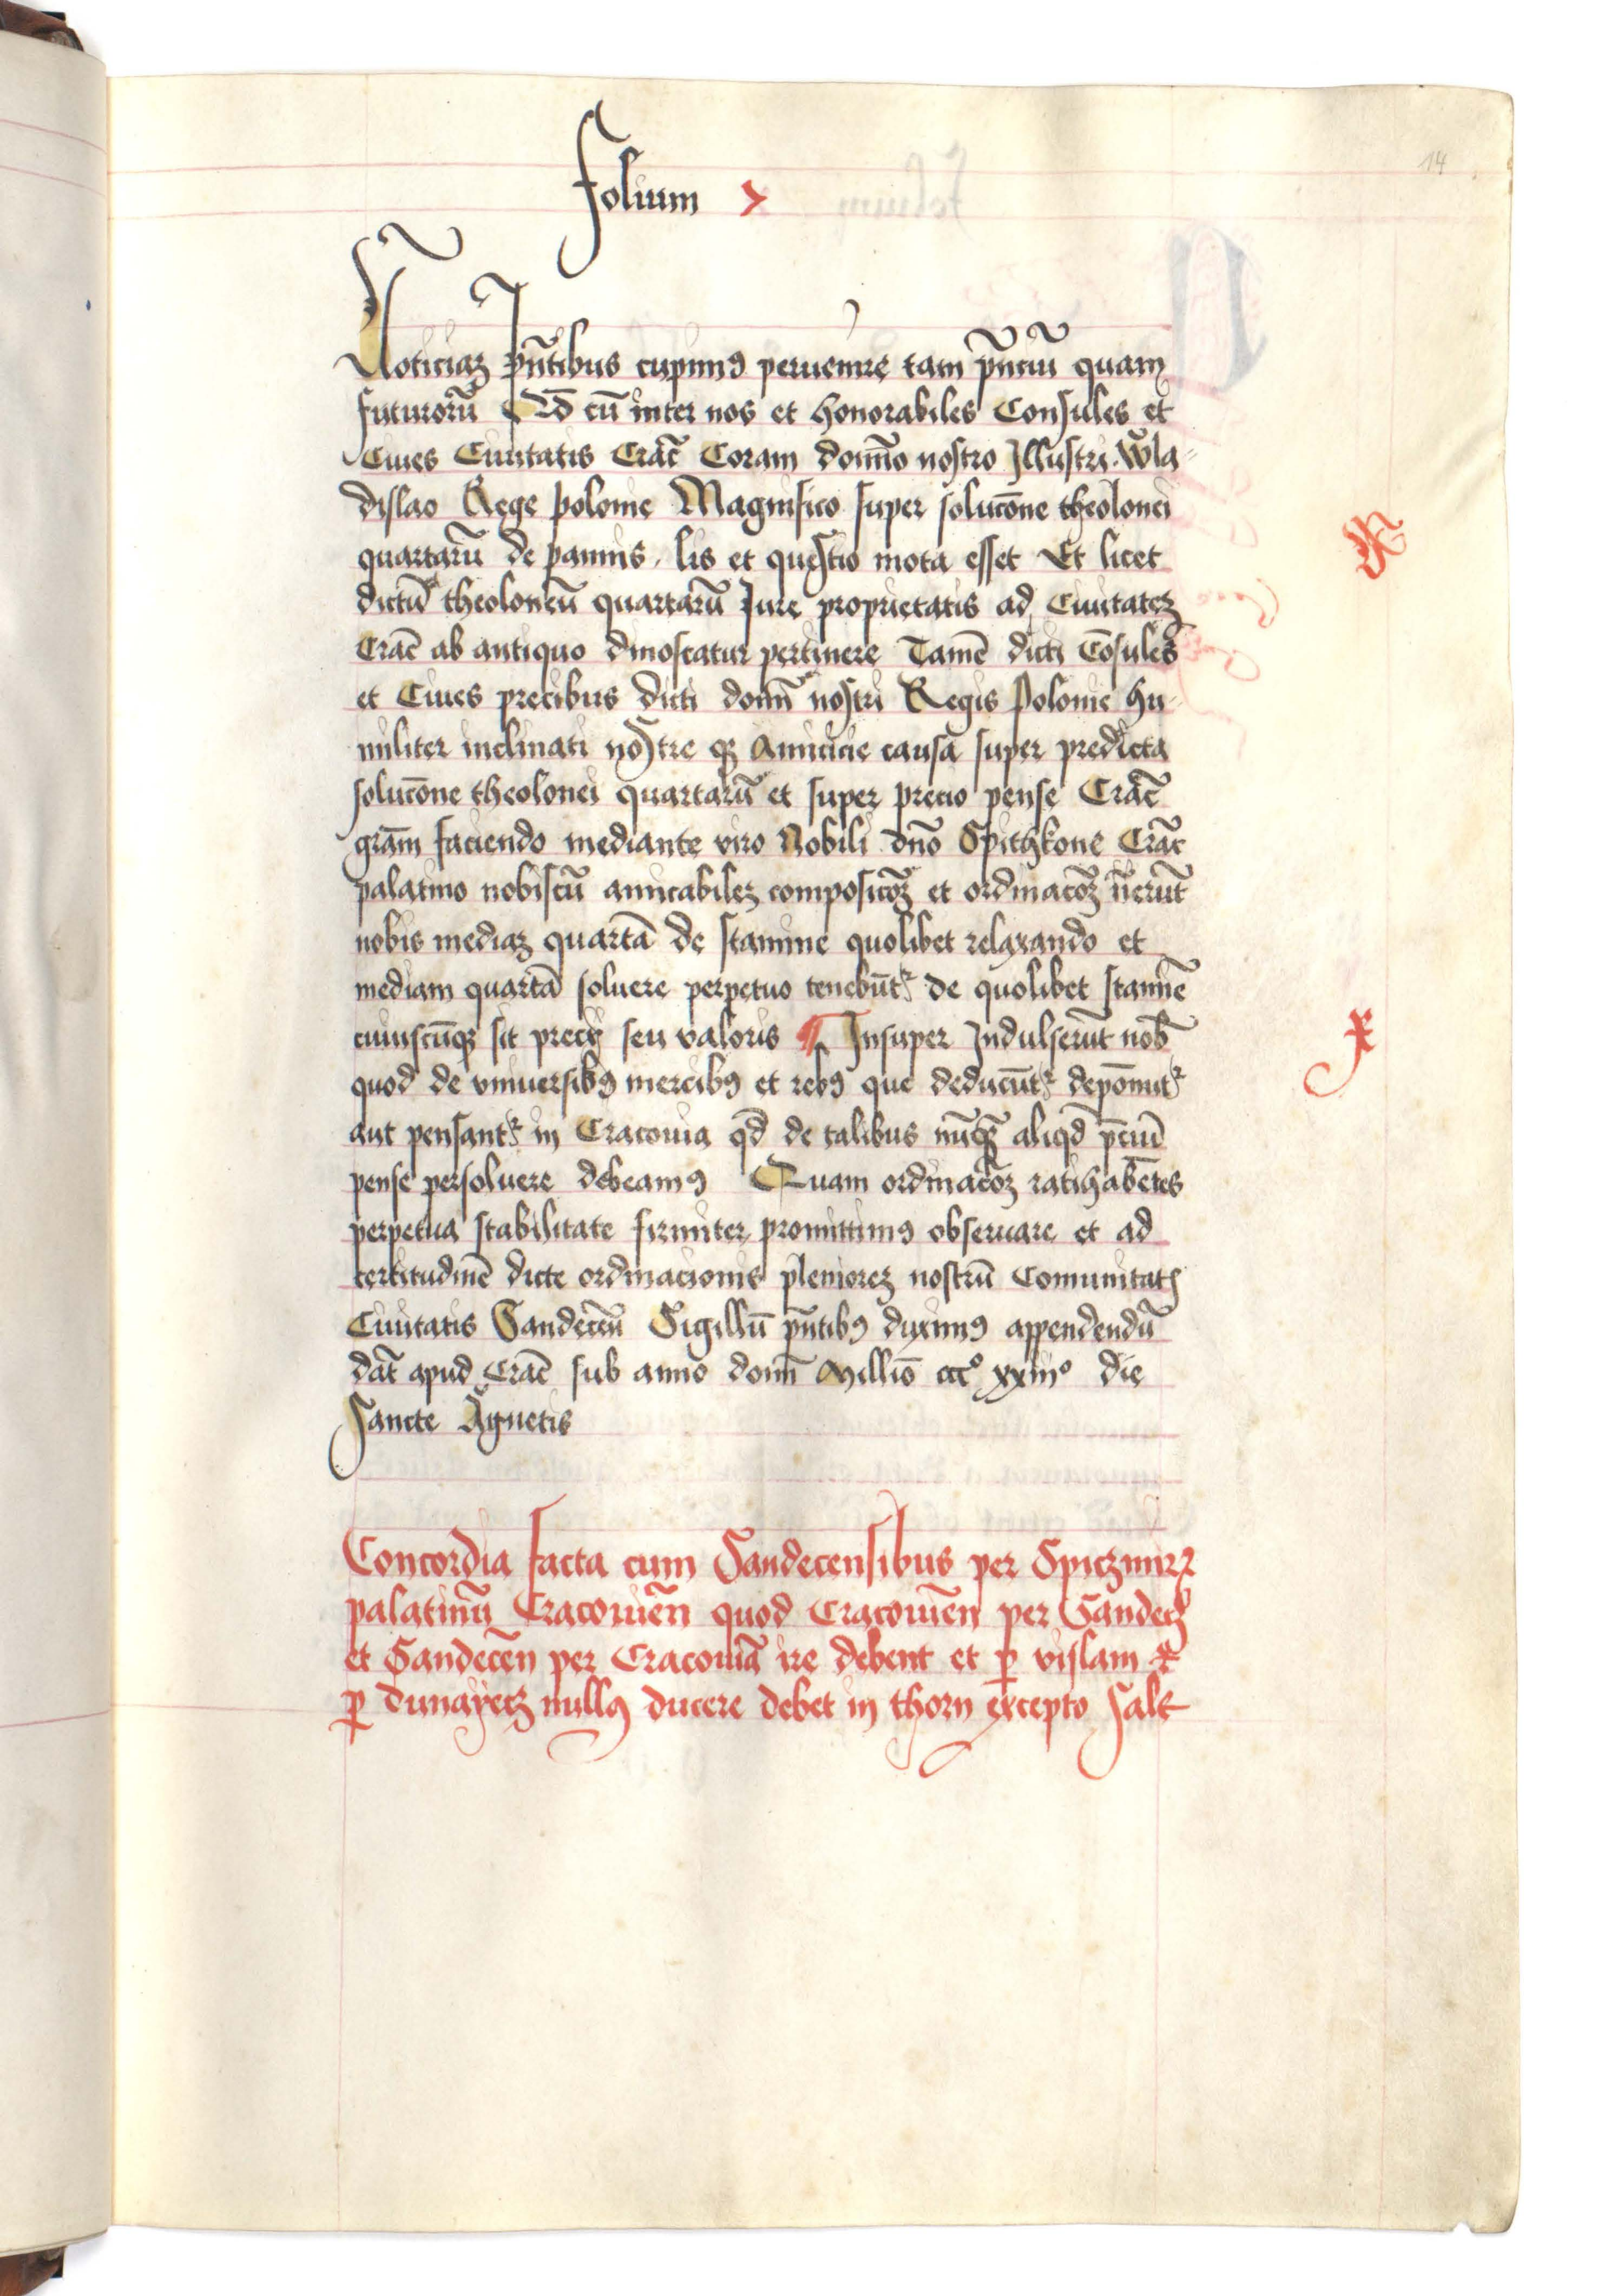 14
folium x
Noticiaʒ p̄ntibus cupimꝰ peruenire tam p̄nciū quam
futurorū Qd̄ cū inter nos et honorabiles Consules et
Ciues Ciuitatis Crac̄ Coram domīo nostro Jllustri. Wla-
dislao Rege polonie Magnifico super solucōne theolonei
quartarū de pannis. lis et questio mota esset Et licet
dictū theoloneū quartarū Jure proprietatis ad Ciuitateʒ
Crac̄ ab antiquo dinoscatur pertinere Tamē dicti Cōsules
et Ciues precibus dicti domī nostri Regis Polonie hu-
militer inclinati nostre qʒ Amicicie causā super predicta
solucōne theolonei quartarū et super precio pense Crac̄
grām faciendo mediante viro Nobili dn̄o Spithkone Crac̄
palatino nobiscū amicabileʒ composicōʒ et ordinacōʒ īierūt
nobis mediaʒ quartā de stamine quolibet relaxando et
mediam quartā soluere perpetuo tenebūtᷣ de quolibet stamīe
cuiuscūqʒ sit precij seu valoris ¶ Jnsuper Jndulserūt nob̄
quod de vniuersibꝰ mercibꝰ et rebꝰ que deducūtᷣ depōnutᷣ
aut pensantᷣ in Cracouia qd̄ de talibus nūqʒ aliqd̄ p̄ciū
pense persoluere debeamꝰ Quam ordinacōʒ ratihabētes
perpetua stabilitate firmiter promittimꝰ obseruare et ad
certitudinē dicte ordinacionis plenioreʒ nostrū Comunitatꝭ
Ciuitatis Sandecēn Sigillū p̄ntibꝰ duximꝰ appendendū
dat̄ apud Crac̄ sub anno domī Millīo cccº xxiiiº die
Sancte Agnetis
Concordia facta cum Sandecensibus per Spiczmirꝝ
palatinū Cracouiēn quod Cracouiēn per Sandecʒ
et Sandecēn per Cracouiā ire debent et ꝑ vislam &
ꝑ dunayecʒ nullꝰ ducere debet in thorn excepto sale